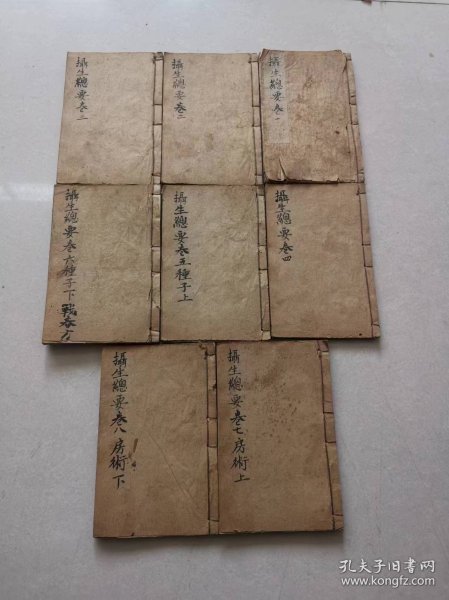 攝生總要卷一
攝生總要卷二
攝生總要卷三
攝生總要卷四
攝生總要卷五種子上
攝生總要卷六種子下
攝生總要卷七房術上
攝生總要卷八房術下
孔夫子旧书网
www.kongfz.com